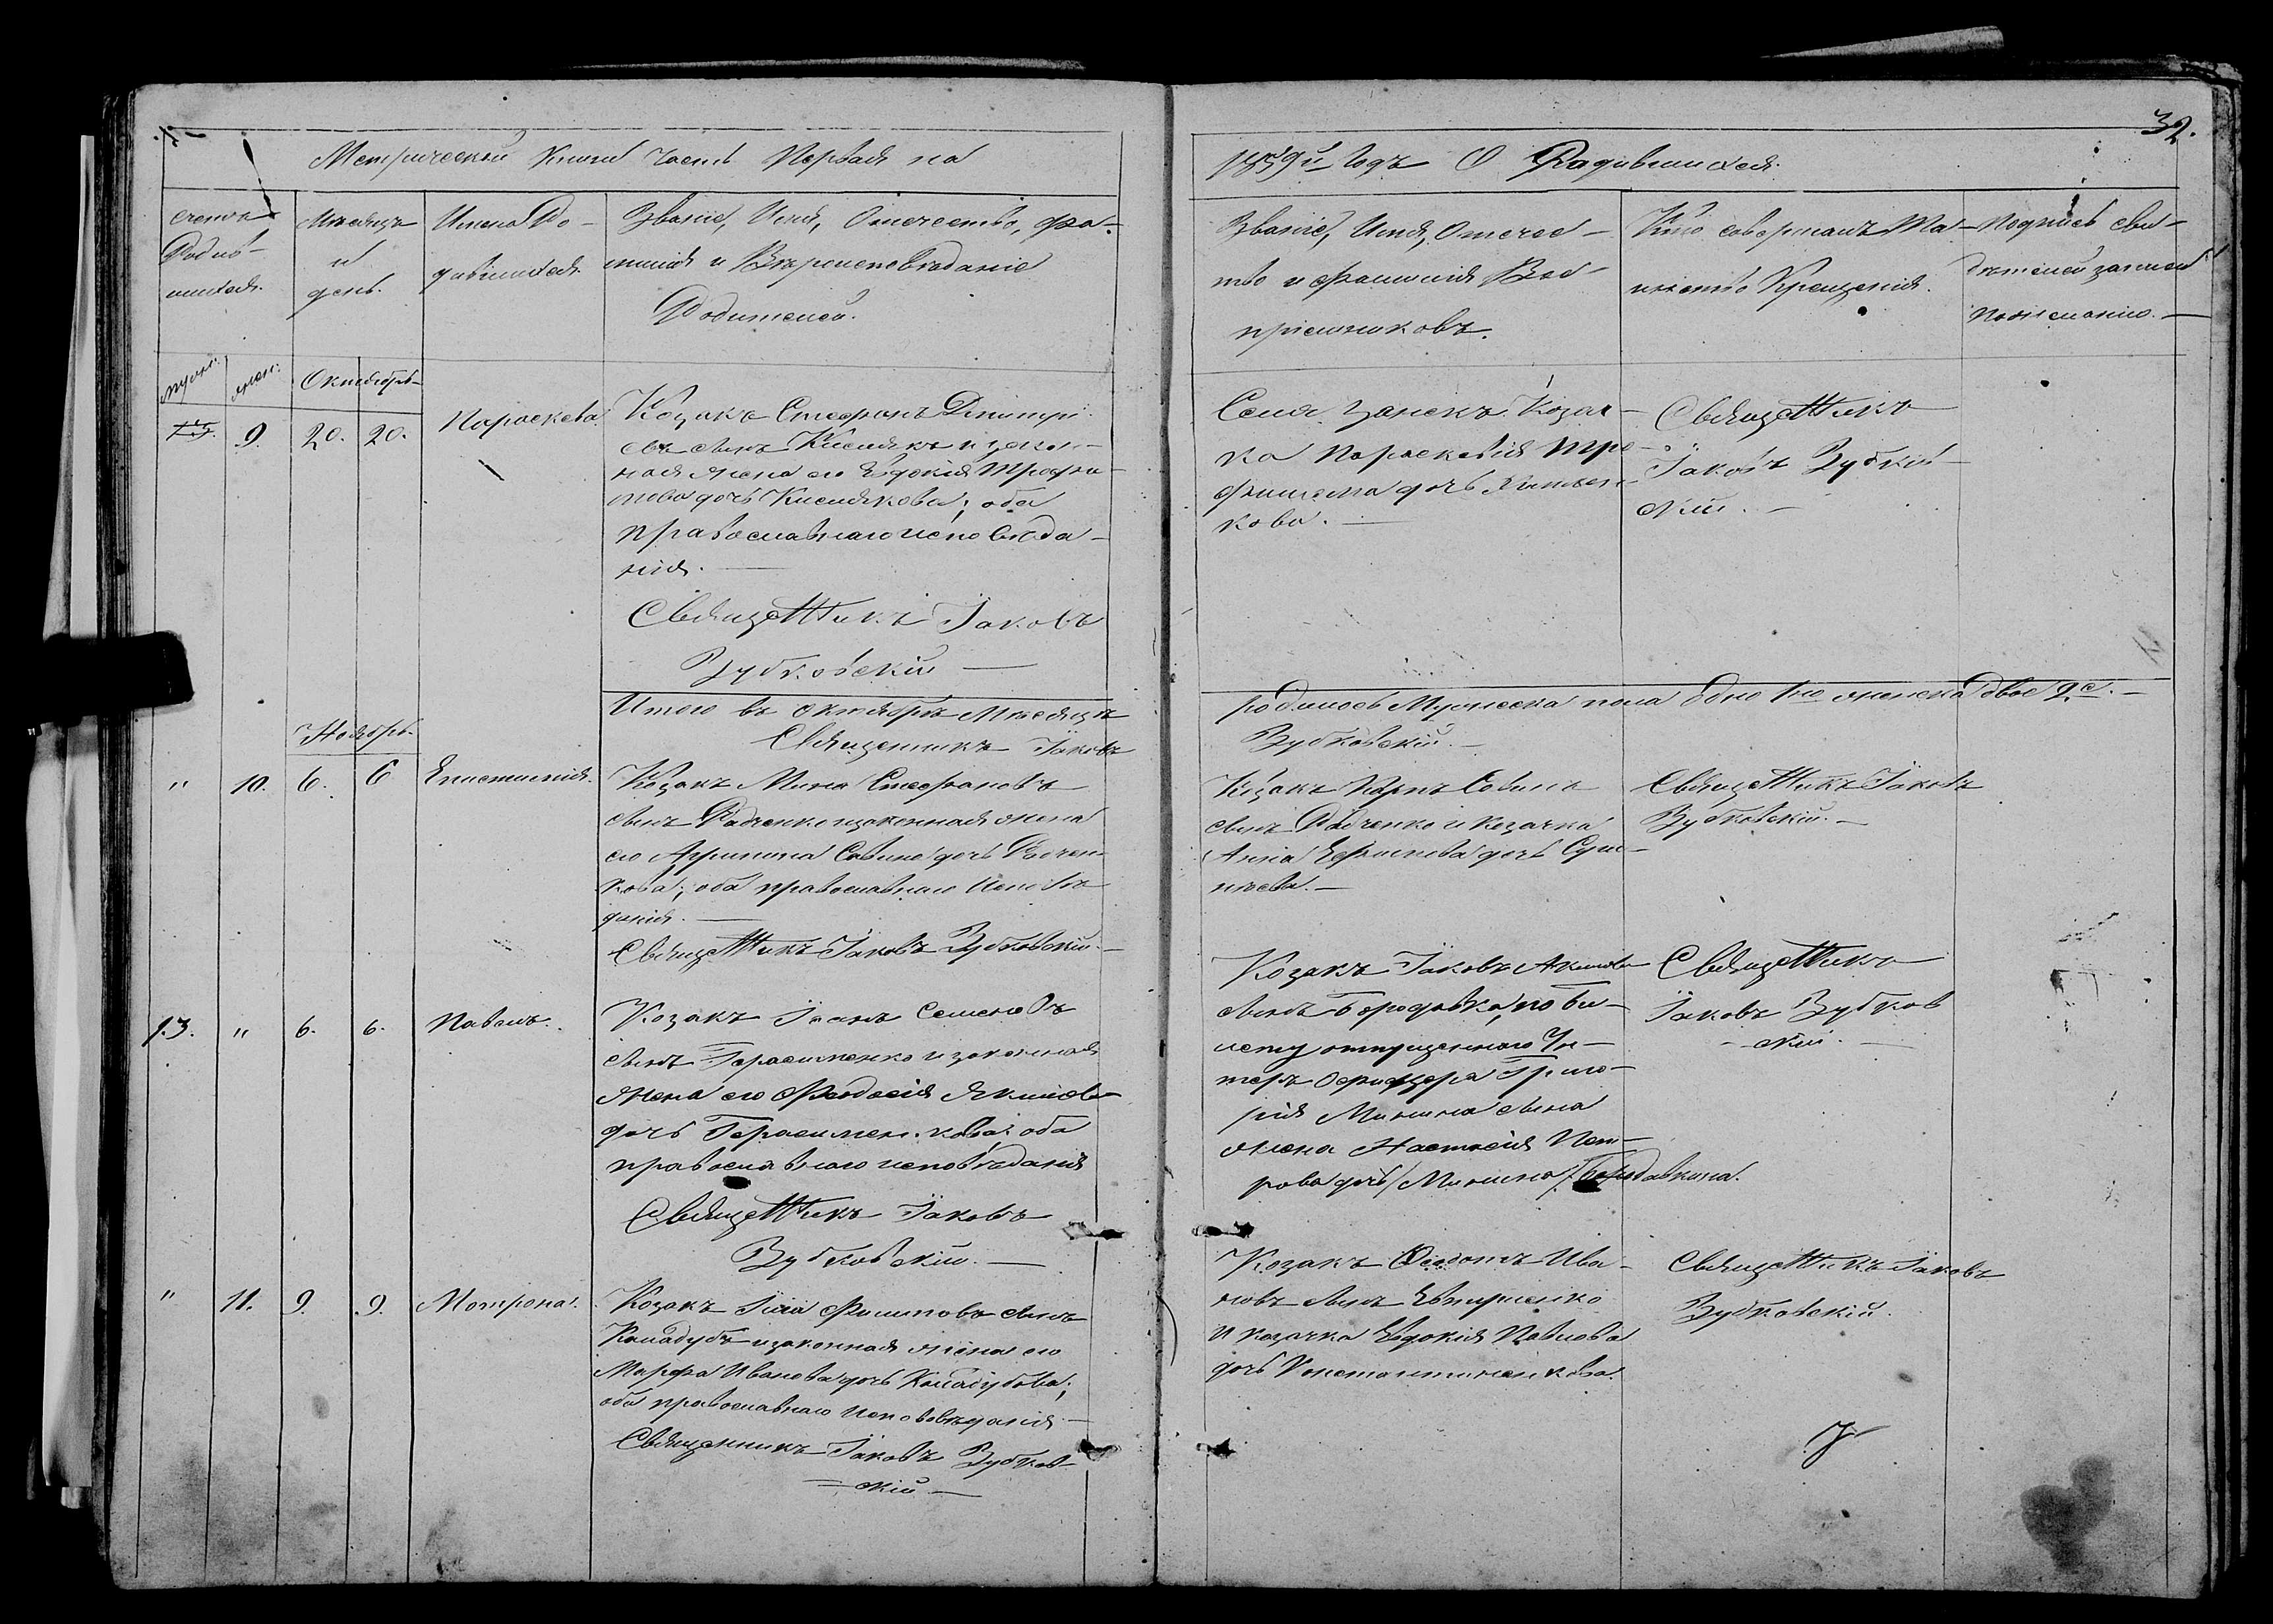 32.
Метрической Книги Часть Первая на
1859й Годъ О Родившихся.
Счетъ
Родив-
шихся.
Мѣсяцъ
и
день.
Имена Ро-
дившихся.
Званіе, Имя, Отечество, Фа-
милія и Вѣроисповѣданіе
Родителей.
Званіе, Имя, Отечес-
тво и Фамилія Вос-
пріемниковъ.
Кто совершалъ Та-
инство Крещенія.
Подпись сви-
дѣтелей записи
по желанію.
муж:
жен:
Октябрь
9.
20.
20.
Параскева
Козакъ Стефанъ Димитрі-
евъ сынъ Кисилякъ и закон-
ная жена его Евдокія Трофи-
мова дочь Кисилякова; оба
православнаго исповѣда-
нія.
Священникъ Іаковъ
Зубковскій
Козач-
ка Параскевія Тро-
фимова дочь
кова.
Священникъ
Іаковъ Зубков-
скій.
Итого въ Октябрѣ Мѣсяцѣ
родилось Мужеска пола Одно 1но женска Двое 2е.
Священникъ Іаковъ
Зубковскій.
Ноябрь
"
10.
6.
6
Епистимія.
Козакъ Мина Стефановъ
сынъ Радченко и законная жена
его Агрипина Савина дочь Радчен-
кова; оба православнаго Исповѣ-
данія.
Священникъ Іаковъ Зубковскій.
Козакъ Карпъ Савинъ
сынъ Радченко и козачка
Анна Ефимова дочь

Священникъ Іаковъ
Зубковскій.
13.
"
6.
6.
Павелъ.
Козакъ Іоанъ Семеновъ
сынъ Герасименко и законная
жена его Феодосія Якимова
дочь Герасименкова: оба
православнаго исповѣданія
Священникъ Іаковъ
Зубковскій.
Козакъ Іаковъ Акимовъ
сынъ Бородавка, по би-
лету отпущеннаго Ун-
теръ Офицера Григо-
рія Минина сына
жена Настасія Пет-
рова дочь Минина Бородавкина.
Священникъ
Іаковъ Зубков
скій.
"
11.
9.
9.
Матрона.
Козакъ Илія Филиповъ сынъ
Камадубъ и законная жена его
Марфа Иванова дочь Камадубова;
оба православнаго Исповѣданія.
Священникъ Іаковъ Зубков-
скій
Козакъ Феодотъ Ива-
новъ сынъ
и козачка Евдокія Павлова
дочь Константиненкова.
Священникъ Іаковъ
Зубковскій.